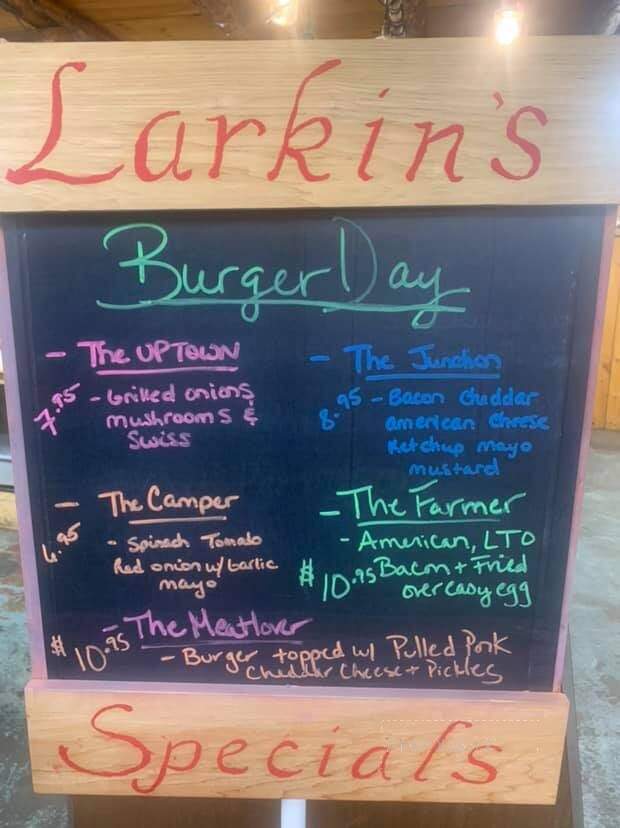 Larkin's
Burger Day
- The UPTOWN
7.95 - Grilled onions
mushrooms &
Swiss
- The Junction
8.95 - Bacon Cheddar
american cheese
Ketchup mayo
mustard
- The Camper
6.95 - Spinach Tomato
Red onion w/ Garlic
mayo
- The Farmer
- American, LTO
$10.95 Bacon + Fried
over easy egg
- The Meatlover
$10.95 - Burger topped w/ Pulled Pork
Cheddar Cheese + Pickles
Specials